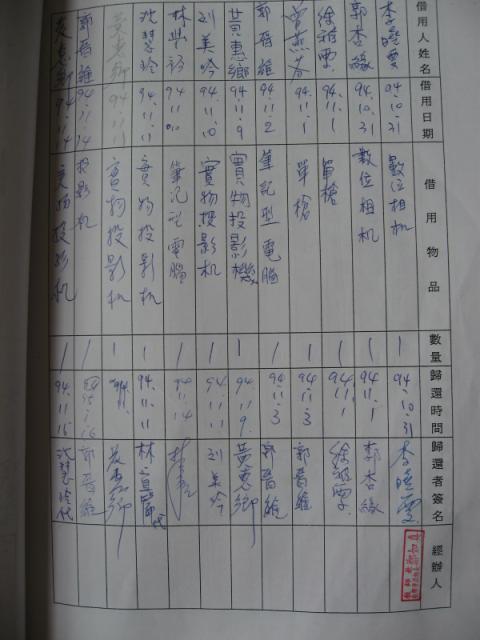 借用人姓名 借用日期 借用物品 數量 歸還時間 歸還者簽名 經辦人
李曉雯 94.10.31 數位相机 1 94.10.31 李曉雯
郭杏緣 94.10.31 數位相机 1 94.11.1 郭杏緣
徐雅雯 94.11.1 單槍 1 94.11.1 徐雅雯
94.11.1 單槍 1 94.11.3 郭晉維
郭晉維 94.11.2 筆記型電腦 1 94.11.3 郭晉維
黃惠鄉 94.11.9 實物投影機 1 94.11.9. 黃惠鄉
刘美吟 94.11.10 實物投影机 1 94.11.11 刘美吟
94.11.10 筆記型電腦 1 94.11.14
沈慧玲 94.11.11 實物投影机 1 94.11.11 代
黃惠鄉 94.11.11 實物投影机 1 94.11. 黃惠鄉
郭晉維 94.11.14 投影机 1 郭晉維
黃惠鄉 94.11.14 實物投影机 1 94.11.15 沈慧玲代